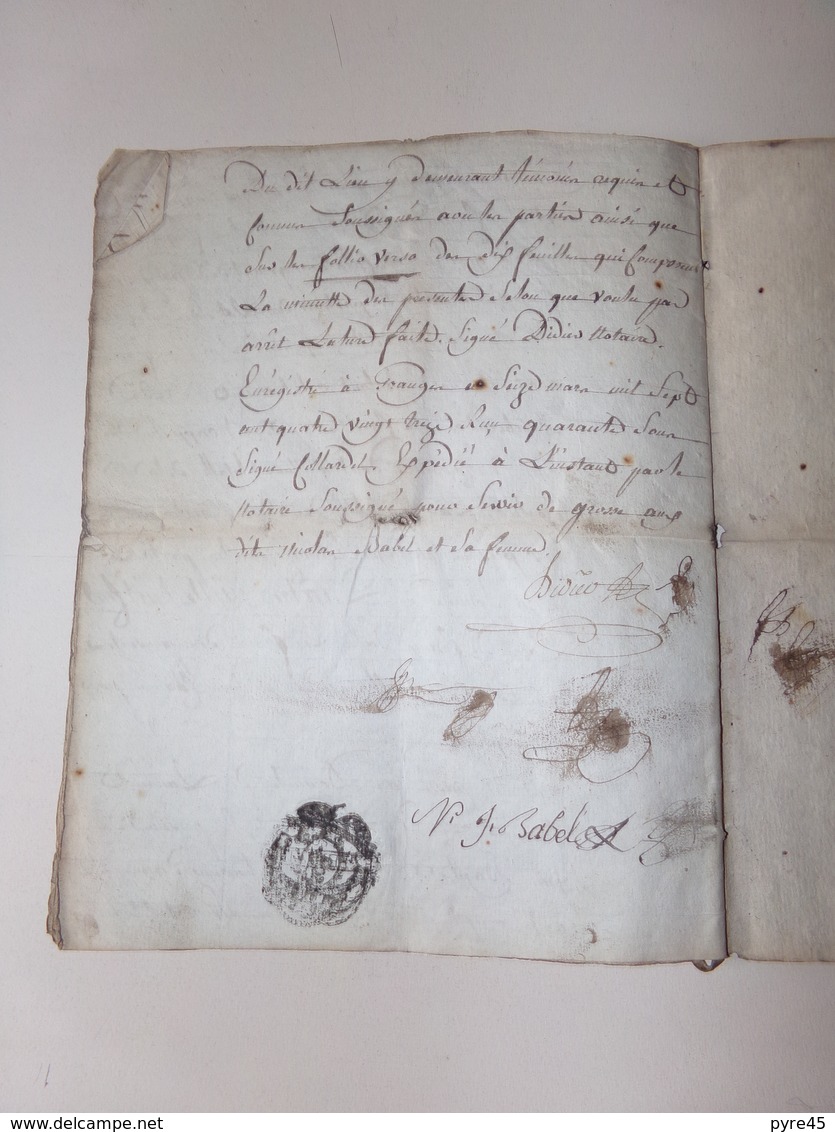 Du dit Lieu y demeurant témoins requis et
connus Soussignés avec les parties ainsi que
Sur les follio verso des dix feuilles qui Composent
La minutte des presentes Selon que voulu par
arrêt Lecture faite. Signé Didier Notaire.
Enrégistré à Granges le Seize mars mil Sept
cent quatre vingt treize Reçu quarante Sous
Signé Collardel. Expédié à L'instant par le
Notaire Soussigné pour Servir de grosse aux
dits Nicolas Babel et Sa femme.
Didier
N. J. Babel
delcampe.net
pyre45